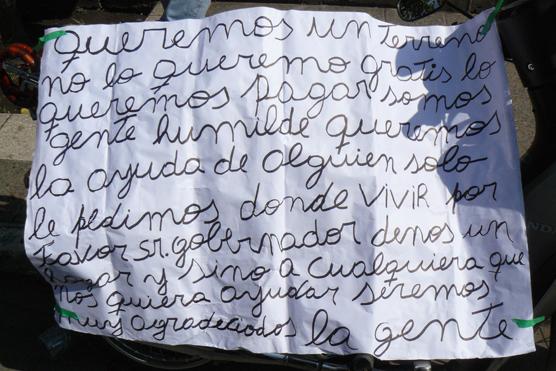 queremos un terreno
no lo queremo gratis lo
queremos pagar somos
gente humilde queremos
la ayuda de alguien solo
le pedimos donde vivir por
favor sr. gobernador denos un
hogar y sino a cualquiera que
nos quiera ayudar seremos
muy agradeciodos la gente